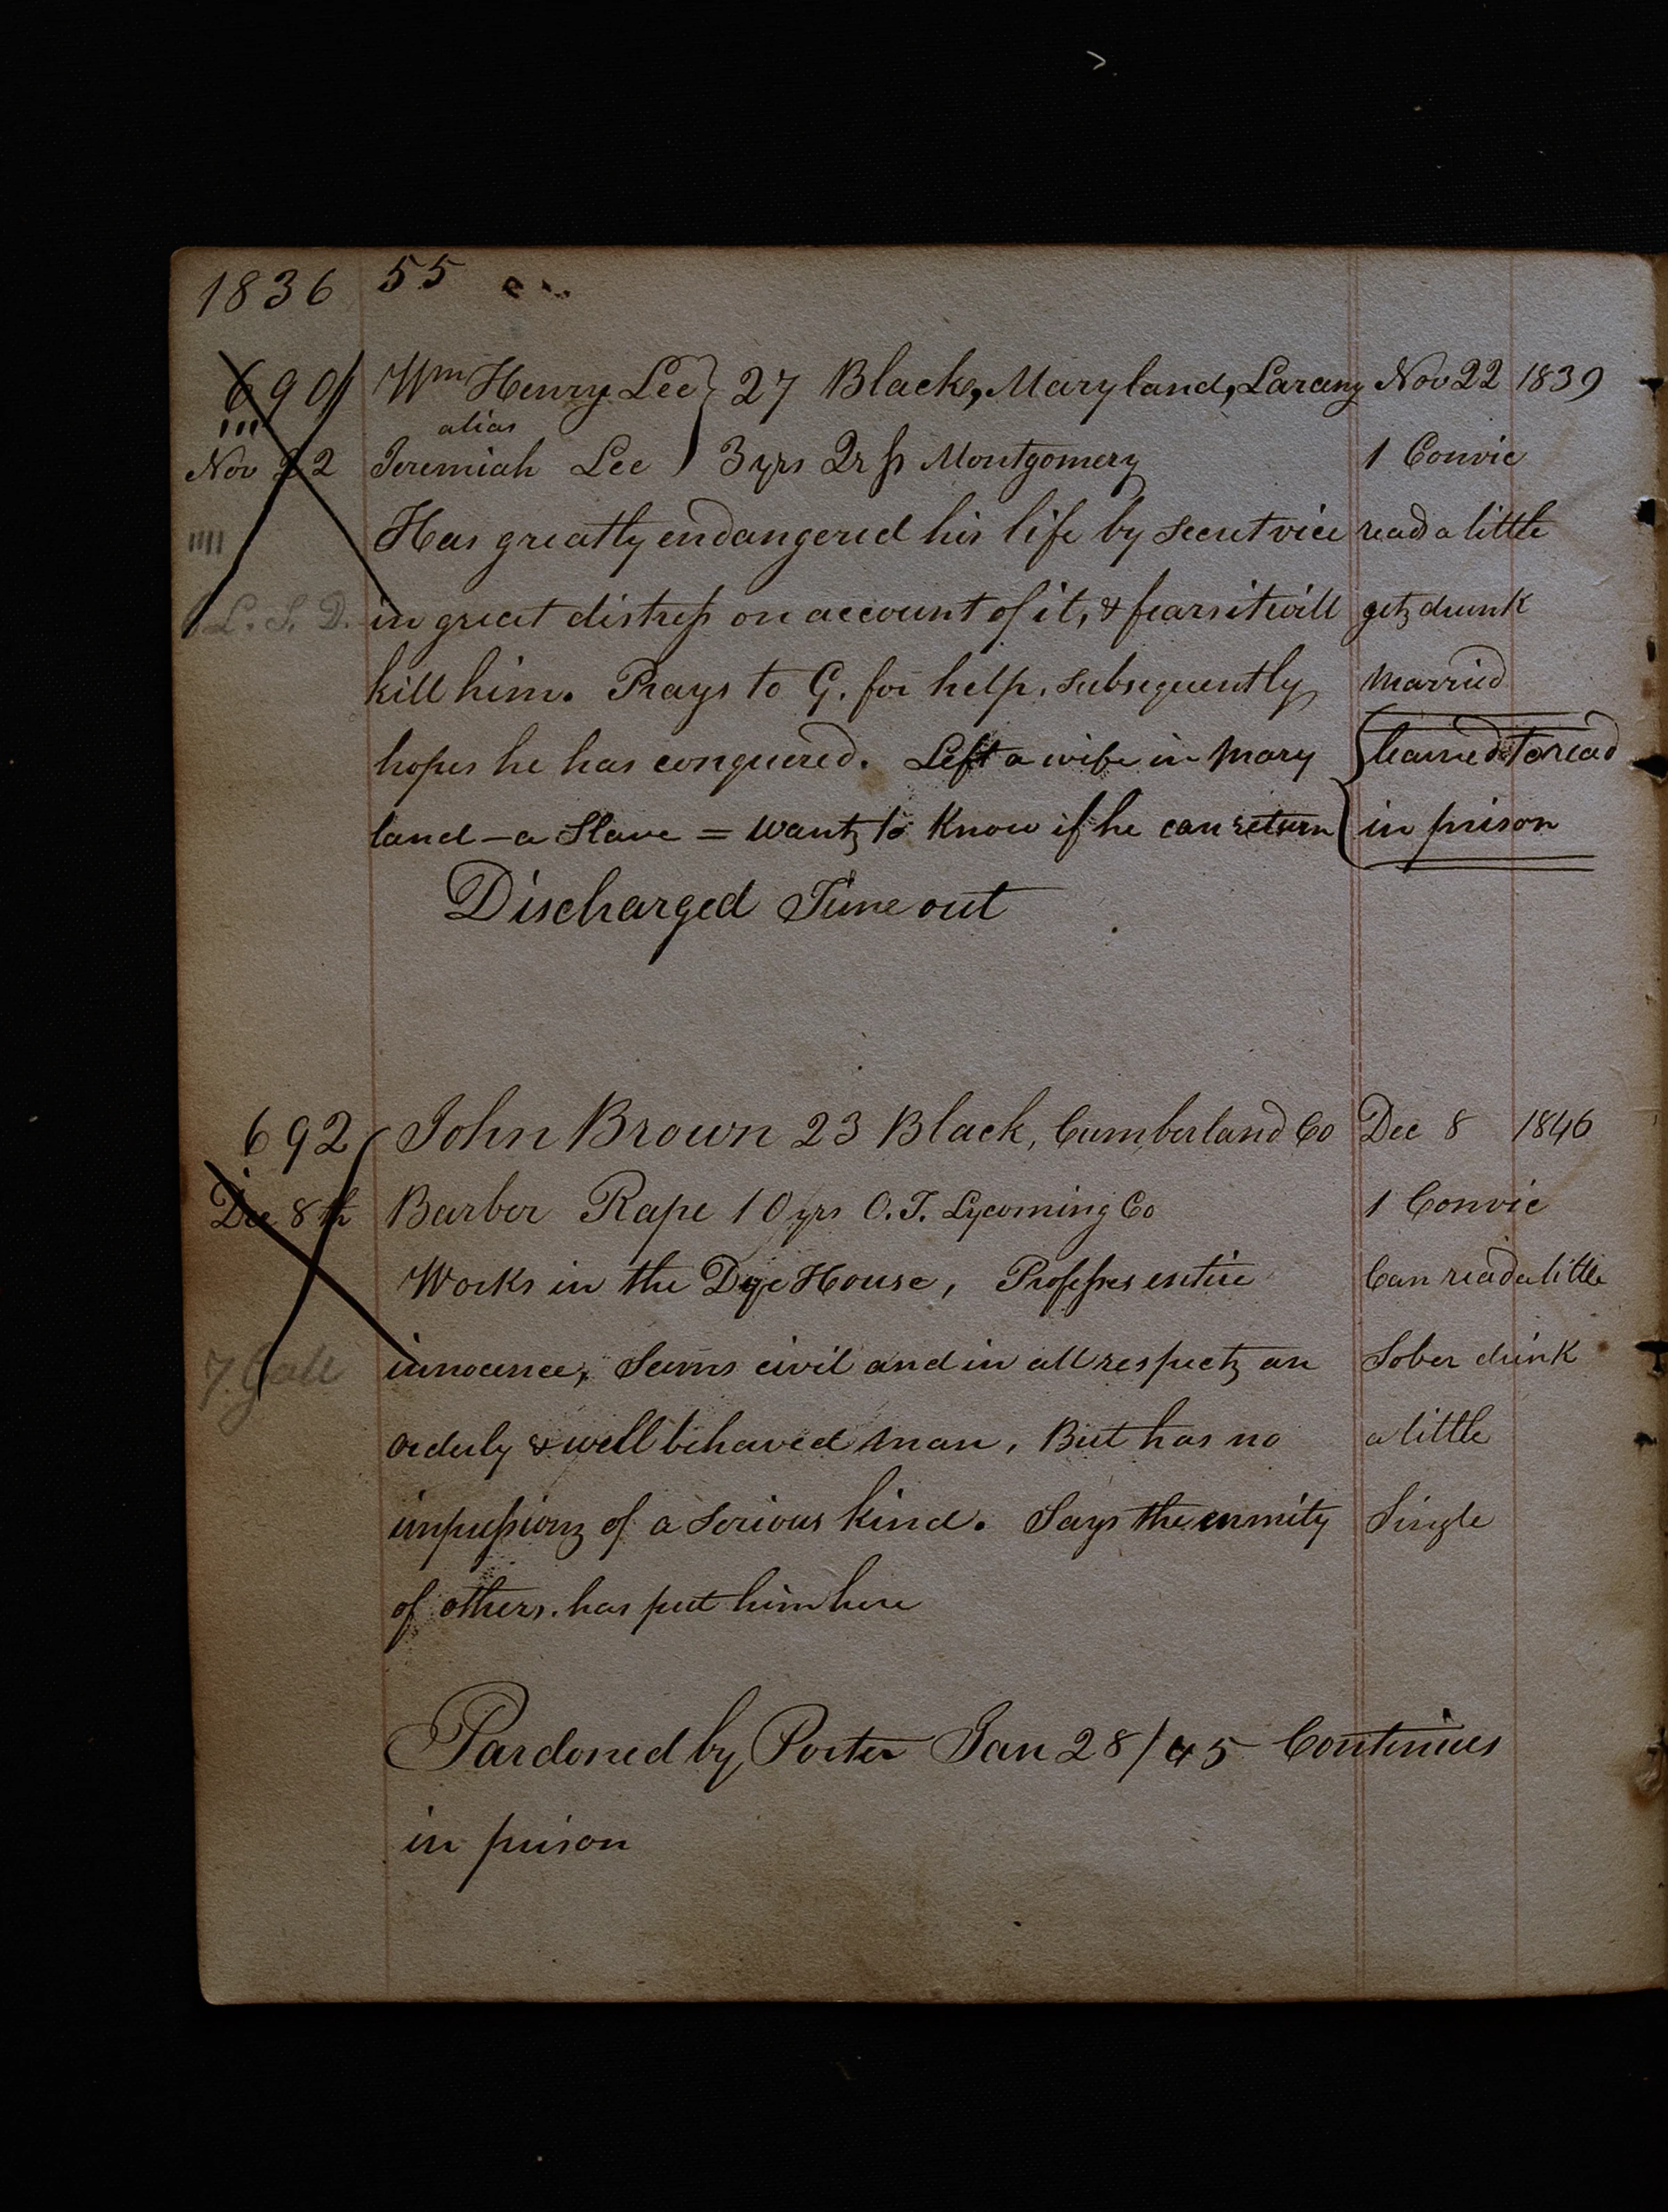 1836 55
690 Wm Henry Lee } 27 Black, Maryland, Larceny Nov 22 1839
alias
Nov 22 Jeremiah Lee } 3 yrs Montgomery 1 Convic
Has greatly endangered his life by secret vice read a little
L. S. D. in great distress on account of it, & fears it will gets drunk
kill him. Prays to G. for help. subsequently married
hopes he has conquered. Left a wife in Mary { learned to read
land – a Slave = wants to know if he can return { in prison
Discharged Time out
692 John Brown 23 Black, Cumberland Co Dec 8 1846
Dec 8th Barber Rape 10 yrs O.T. Lycoming Co 1 Convic
Works in the Dye House, Professes entire Can read a little
7. Gall innocence, Seems civil and in all respects an Sober drink
orderly & well behaved man, But has no a little
impressions of a serious kind. Says the enmity Single
of others. has put him here
Pardoned by Porter Jan 28/45 Continues
in prison